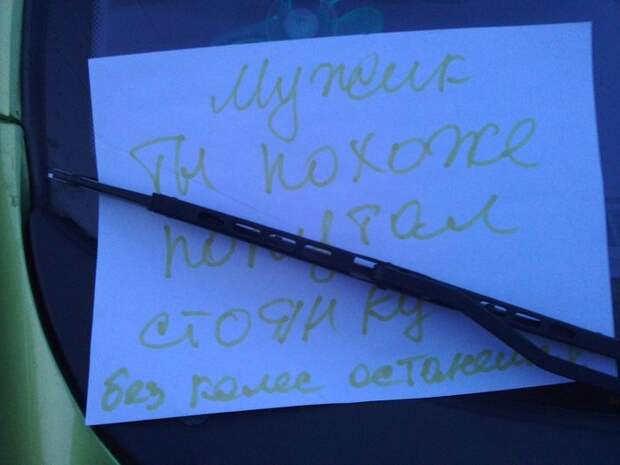 Мужик
ты похоже
попутал
стоянку
без колес останешься